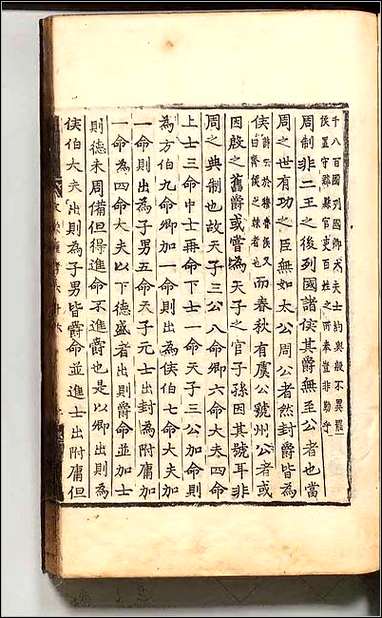 千八百國列國卿大夫士約與殷不異罷
侯置守縣縣官吏百姓之所奉豈非勤乎
周制非二王之後列國諸侯其爵無至公者也當
周之世有功之臣無如太公周公者然封爵皆為
侯又曰齊侯之者也而春秋有虞公虢州公者或
因殷之舊爵或嘗為天子之官子孫因其號耳非
周之典制也故天子三公八命卿六命大夫四命
上士三命中士再命下士一命天子三公加命則
為方伯九命卿加一命則出為侯伯七命大夫加
一命則出為子男五命天子元士出封為附庸加
一命為四命大夫以下德盛者出則爵命並加士
則德未周備但得進命不進爵也是以卿出則為
侯伯大夫出則為子男皆爵命並進士出附庸但